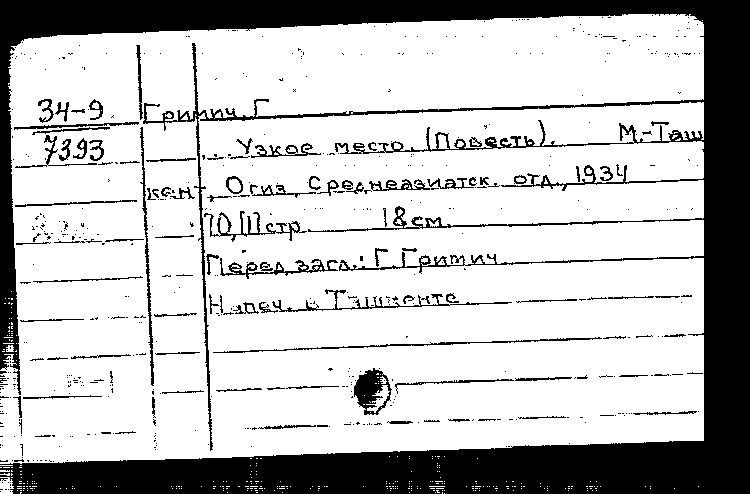 34-9 Гримич, Г
7393 ... Узкое место. (Повесть). М.-Таш
кент, Огиз, Среднеазиатск. отд., 1934
70, [1] стр. 18 см.
Перед загл.: Г. Гримич.
Напеч. в Ташкенте